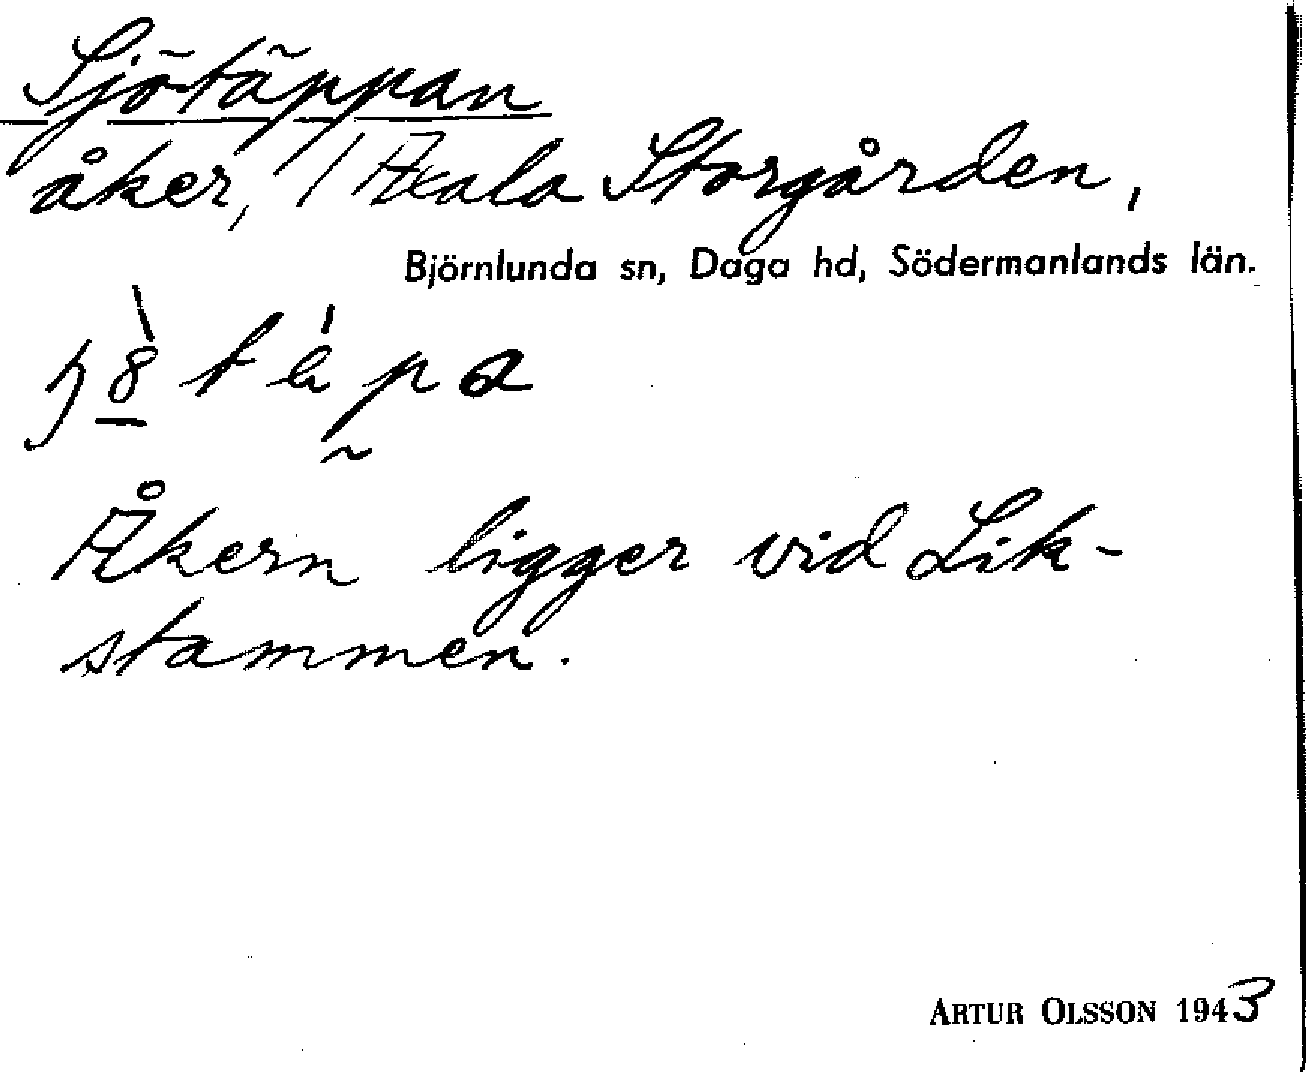 Sjötäppan
åker, / Axala Storgården,
Björnlunda sn, Daga hd, Södermanlands län.
Åkern ligger vid Lik-
stammen.
ARTUR OLSSON 1943